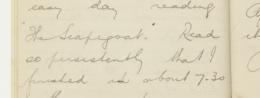 easy day reading
"The Scapegoat." Read
so persistently that I
finished it about 7.30